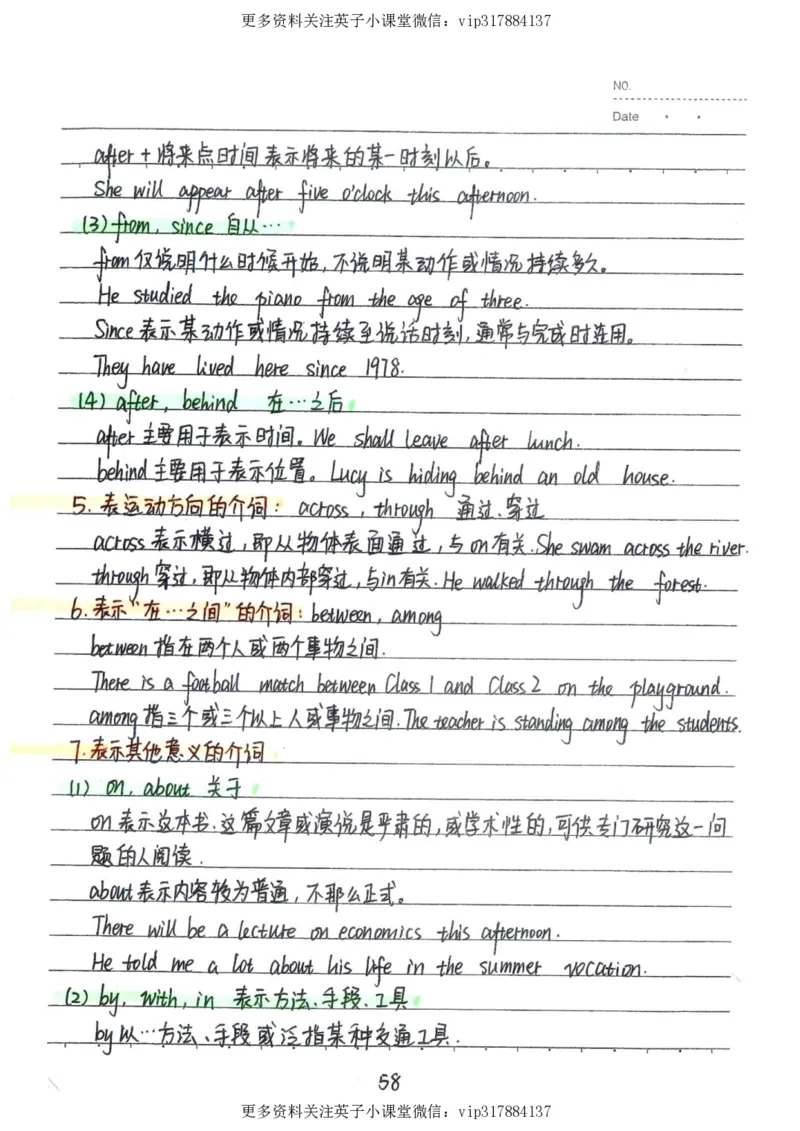 更多资料关注英子小课堂微信：vip317884137
NO.
Date
after + 将来点时间 表示将来的某一时刻以后。
She will appear after five o'clock this afternoon.
(3) from, since 自从…
from 仅说明什么时候开始,不说明某动作或情况持续多久。
He studied the piano from the age of three.
Since 表示某动作或情况持续至说话时刻,通常与完成时连用。
They have lived here since 1978.
(4) after, behind 在…之后
after 主要用于表示时间。We shall leave after lunch.
behind 主要用于表示位置。Lucy is hiding behind an old house.
5. 表运动方向的介词: across, through 通过、穿过
across 表示横过,即从物体表面通过,与on有关.She swam across the river.
through 穿过,即从物体内部穿过,与in有关.He walked through the forest.
6. 表示"在…之间"的介词: between, among
between 指在两个人或两个事物之间.
There is a football match between Class 1 and Class 2 on the playground.
among 指三个或三个以上人或事物之间.The teacher is standing among the students.
7. 表示其他意义的介词
(1) on, about 关于
on 表示这本书.这篇文章或演说是严肃的,或学术性的,可供专门研究这一问
题的人阅读.
about 表示内容较为普通,不那么正式。
There will be a lecture on economics this afternoon.
He told me a lot about his life in the summer vocation.
(2) by, with, in 表示方法、手段、工具
by 以…方法、手段或泛指某种交通工具.
58
更多资料关注英子小课堂微信：vip317884137